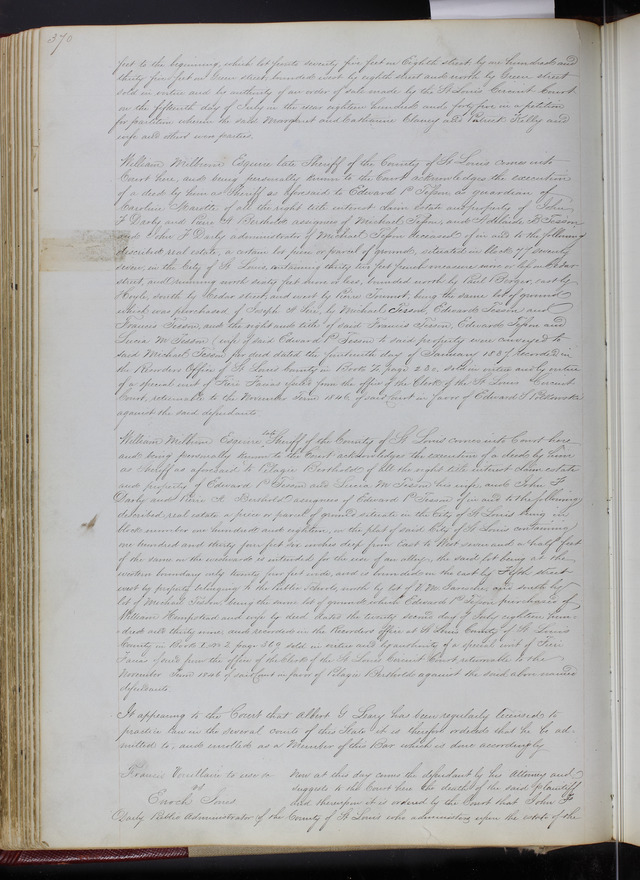 370
feet to the beginning, which lot fronts seventy five feet on Eighth street by one hundred and
thirty five feet on Green street bounded west by eighth street and north by Green street
sold on entire and by authority of an order of sale made by the St Louis Circuit Court
on the fifteenth day of July in the year eighteen hundred and forty five on a petition
for partition wherein the said Margaret and Catharine Clancy and Patrick Kelly and
wife and others were parties.
William Milburn Esquire late Sheriff of the County of St Louis comes into
Court here, and being personally known to the Court acknowledges the execution
of a deed by him as Sheriff as aforesaid to Edward P Tesson as guardian of
Caroline of all the right title interest claim estate and property of John
F Darby and Pierre A Berthold assignees of Michael Tesson, and Adeline F Tesson
and John F Darby administrator of Michael Tesson deceased of in and to the following
described real estate, a certain lot piece or parcel of ground, situated in block 77 seventy
seven, in the City of St Louis, containing thirty two feet french measure more or less on Cedar
street, and running north sixty feet more or less, bounded north by Berger, east by
Hoyle, south by Cedar street, and west by Pierre, being the same lot of ground
which was purchased of Joseph by Michael Tesson Edward Tesson and
Francis Tesson, and the right and title of said Francis Tesson, Edward Tesson and
Lucia M Tesson (wife of said Edward P Tesson) to said property were conveyed to
said Michael Tesson by deed dated the fourteenth day of January 1837 recorded in
the Recorders Office of St Louis County in Book page 232, sold on entire and by virtue
of a special writ of Fieri Facias issued from the office of the Clerk of the St Louis Circuit
Court, returnable to the November Term 1846 of said Court in favor of Edward
against the said defendants.
William Milburn Esquire, late Sheriff of the County of St Louis comes into Court here
and being personally known to the Court acknowledges the execution of a deed by him
as Sheriff as aforesaid to Pelagie Berthold of all the right title interest claim estate
and property of Edward P Tesson and Lucia M Tesson his wife, and John F
Darby and Pierre A Berthold assignees of Edward P Tesson of in and to the following
described real estate a piece or parcel of ground situate in the City of St Louis being in
block number one hundred and eighteen, in the plat of said City of St Louis containing
one hundred and thirty five feet six inches deep from East to West seven and a half feet
of the same on the westwards is intended for the use of an alley, the said lot being at the
western boundary only twenty five feet wide, and is bounded on the east by Fifth street
west by property belonging to the Public Schools, north by lot of, and south by
lot of Michael Tesson being the same lot of ground which Edward P Tesson purchased of
William Hempstead and wife by deed dated the twenty second day of July eighteen hun-
dred and thirty nine and recorded in the Recorders office at St Louis County of St Louis
County in Book page 369 sold on entire and by authority of a special writ of Fieri
Facias issued from the office of the Clerk of the St Louis Circuit Court returnable to the
November Term 1846 of said Court in favor of Pelagie Berthold against the said above named
defendants.
It appearing to the Court that Albert G Leary has been regularly licensed to
practice law in the several courts of this State it is therefore ordered that he be ad-
mitted to, and enrolled as a Member of this Bar which is done accordingly
Francis to use &c
vs
Enoch Jones
Now at this day comes the defendant by his Attorney and
suggests to the Court here the death of the said plaintiff
and thereupon it is ordered by the Court that John F
Darby Public Administrator of the County of St Louis who administers upon the estate of the